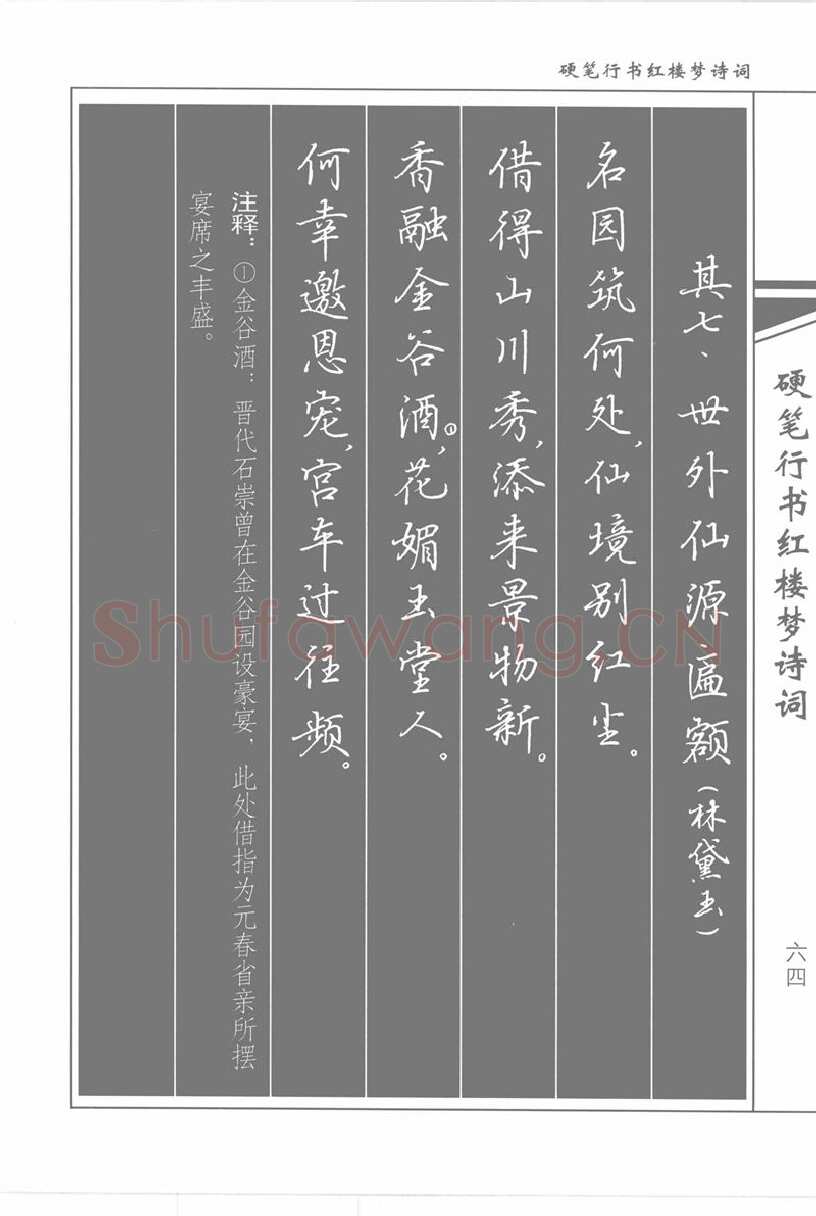 硬笔行书红楼梦诗词
其七、世外仙源匾额(林黛玉)
名园筑何处,仙境别红尘。
借得山川秀,添来景物新。
香融金谷酒①,花媚玉堂人。
何幸邀恩宠,宫车过往频。
注释:①金谷酒:晋代石崇曾在金谷园设豪宴,此处借指为元春省亲所摆
宴席之丰盛。
硬笔行书红楼梦诗词
六四
Shufawang.CN